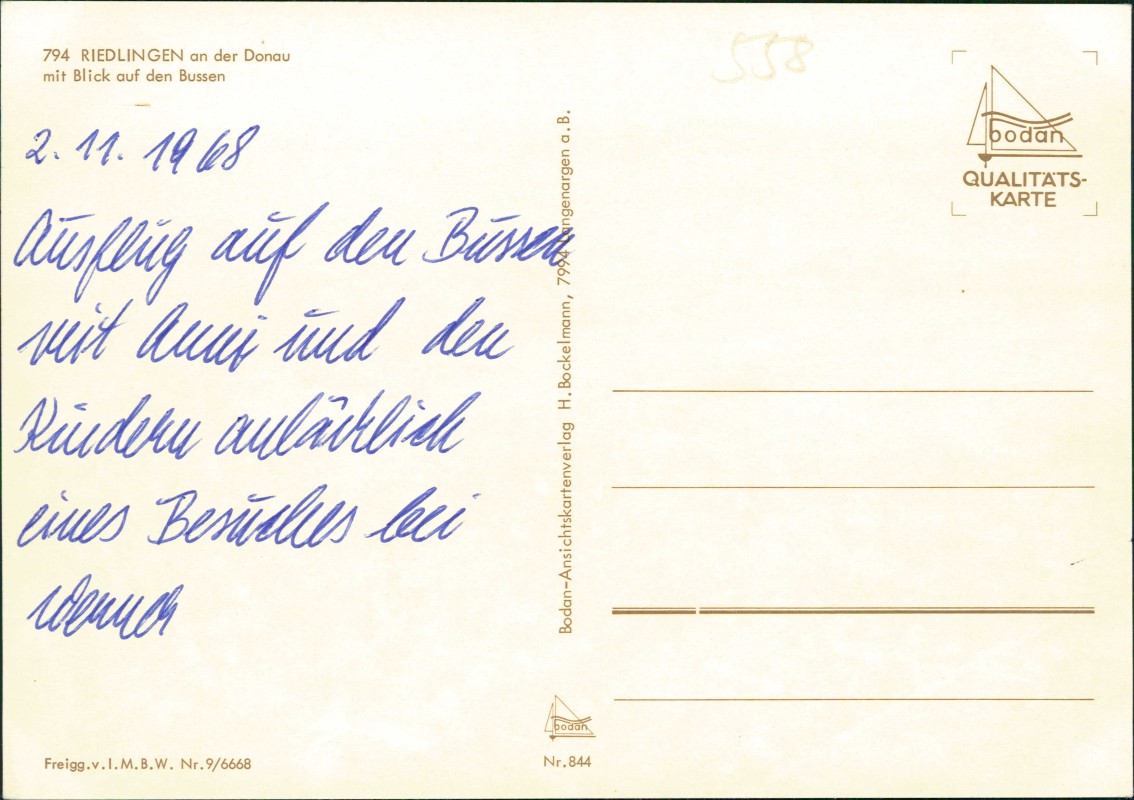 794 RIEDLINGEN an der Donau
mit Blick auf den Bussen
2. 11. 1968
Ausflug auf den Bussen
mit Anni und den
Kindern anläßlich
eines Besuches bei
Werner
Freigg.v.I.M.B.W. Nr.9/6668
Bodan-Ansichtskartenverlag H. Bockelmann, 7994 Langenargen a.B.
bodan
Nr.844
558
bodan
QUALITÄTS-
KARTE